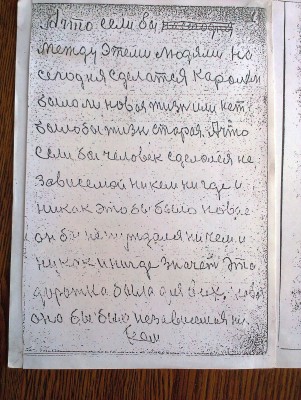 А что если бы
между этеми людями на
сегодня сделатся каролем
было ли новая жизн или нет
было бы жизн старая. А что
если бы человек сделолся не
зависемой ни кем ни где и
никак это бы было новае
он бы не нуждался ни чем и
ни как и нигде значет эта
дорожка была для всех,
оно бы был независемая ни
кем